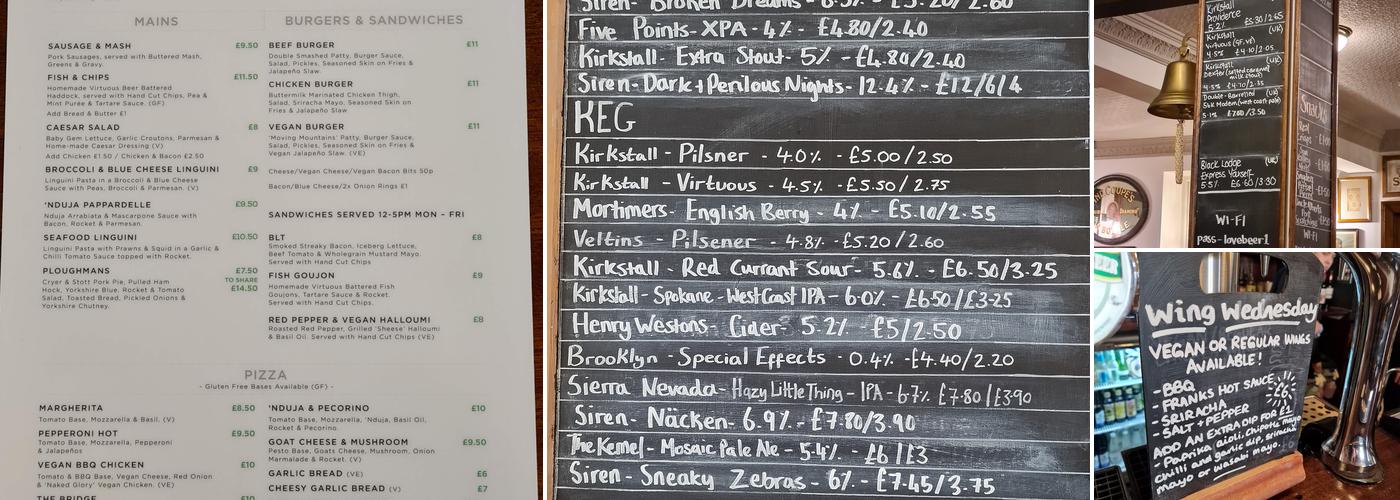 MAINS
SAUSAGE & MASH £9.50
Pork Sausages, served with Buttered Mash,
Greens & Gravy.
FISH & CHIPS £11.50
Homemade Virtuous Beer Battered
Haddock, served with Hand Cut Chips, Pea &
Mint Purée & Tartare Sauce. (GF)
Add Bread & Butter £1
CAESAR SALAD £8
Baby Gem Lettuce, Garlic Croutons, Parmesan &
Home-made Caesar Dressing (V)
Add Chicken £1.50 / Chicken & Bacon £2.50
BROCCOLI & BLUE CHEESE LINGUINI £9
Linguini Pasta in a Broccoli & Blue Cheese
Sauce with Peas, Broccoli & Parmesan. (V)
'NDUJA PAPPARDELLE £9.50
Nduja Arrabiata & Mascarpone Sauce with
Bacon, Rocket & Parmesan.
SEAFOOD LINGUINI £10.50
Linguini Pasta with Prawns & Squid in a Garlic &
Chilli Tomato Sauce topped with Rocket.
PLOUGHMANS £7.50
Cryer & Stott Pork Pie, Pulled Ham TO SHARE
Hock, Yorkshire Blue, Rocket & Tomato £14.50
Salad, Toasted Bread, Pickled Onions &
Yorkshire Chutney.
BURGERS & SANDWICHES
BEEF BURGER £11
Double Smashed Patty, Burger Sauce,
Salad, Pickles, Seasoned Skin on Fries &
Jalapeño Slaw.
CHICKEN BURGER £11
Buttermilk Marinated Chicken Thigh,
Salad, Sriracha Mayo, Seasoned Skin on
Fries & Jalapeño Slaw
VEGAN BURGER £11
'Moving Mountains' Patty, Burger Sauce,
Salad, Pickles, Seasoned Skin on Fries &
Vegan Jalapeño Slaw. (VE)
Cheese/Vegan Cheese/Vegan Bacon Bits 50p
Bacon/Blue Cheese/2x Onion Rings £1
SANDWICHES SERVED 12-5PM MON - FRI
BLT £8
Smoked Streaky Bacon, Iceberg Lettuce,
Beef Tomato & Wholegrain Mustard Mayo.
Served with Hand Cut Chips
FISH GOUJON £9
Homemade Virtuous Battered Fish
Goujons, Tartare Sauce & Rocket.
Served with Hand Cut Chips.
RED PEPPER & VEGAN HALLOUMI £8
Roasted Red Pepper, Grilled 'Sheese' Halloumi
& Basil Oil. Served with Hand Cut Chips (VE)
PIZZA
- Gluten Free Bases Available (GF) -
MARGHERITA £8.50
Tomato Base, Mozzarella & Basil. (V)
PEPPERONI HOT £9.50
Tomato Base, Mozzarella, Pepperoni
& Jalapeños
VEGAN BBQ CHICKEN £10
Tomato & BBQ Base, Vegan Cheese, Red Onion
& 'Naked Glory' Vegan Chicken. (VE)
THE BRIDGE £10
'NDUJA & PECORINO £10
Tomato Base, Mozzarella, 'Nduja, Basil Oil,
Rocket & Pecorino.
GOAT CHEESE & MUSHROOM £9.50
Pesto Base, Goats Cheese, Mushroom, Onion
Marmalade & Rocket. (V)
GARLIC BREAD (VE) £6
CHEESY GARLIC BREAD (V) £7
Siren- Broken Dreams - 6.5% - £5.20/2.60
Five Points- XPA - 4% - £4.80/2.40
Kirkstall- Extra Stout- 5% -£4.80/2.40
Siren-Dark+Perilous Nights-12.4% - £12/6/4
KEG
Kirkstall - Pilsner - 4.0% - £5.00/2.50
Kirkstall - Virtuous - 4.5% -£5.50/ 2.75
Mortimers- English Berry - 4% - £5.10/2.55
Veltins - Pilsener - 4.8% -£5.20/2.60
Kirkstall - Red Currant Sour- 5.6% - £6.50/3.25
Kirkstall-Spokane -West Coast IPA - 6.0% - £6.50/£3.25
Henry Westons- Cider- 5.2% - £5/2.50
Brooklyn - Special Effects - 0.4% -£4.40/2.20
Sierra Nevada- Hazy Little Thing - IPA - 6.7% £7.80/£3.90
Siren- Näcken- 6.9% - £7.80/3.90
The Kernel- Mosaic Pale Ale - 5.4% - £6/£3
Siren- Sneaky Zebras - 6% - £7.45/3.75
Kirkstall
Providence
5.2% £5.30/2.65
Kirkstall (UK)
Virtuous (GF, VE)
4.5% £4.10/2.05
Kirkstall (UK)
Dexter (salted caramel
milk stout)
4.5%
Double-Barrelled (UK)
Silk Modem (west coast pale)
5.1%
Black Lodge (UK)
Express Yourself
5.5% £6.60/3.30
WI-FI
pass-lovebeer1
Snacks
WI-FI
Wing Wednesday
VEGAN OR REGULAR WINGS
AVAILABLE!
- BBQ
- FRANKS HOT SAUCE
- SRIRACHA £6
- SALT + PEPPER
ADD AN EXTRA DIP FOR £1
- Paprika aioli, chipotle mayo
chilli and garlic dip, sriracha
mayo or wasabi mayo.